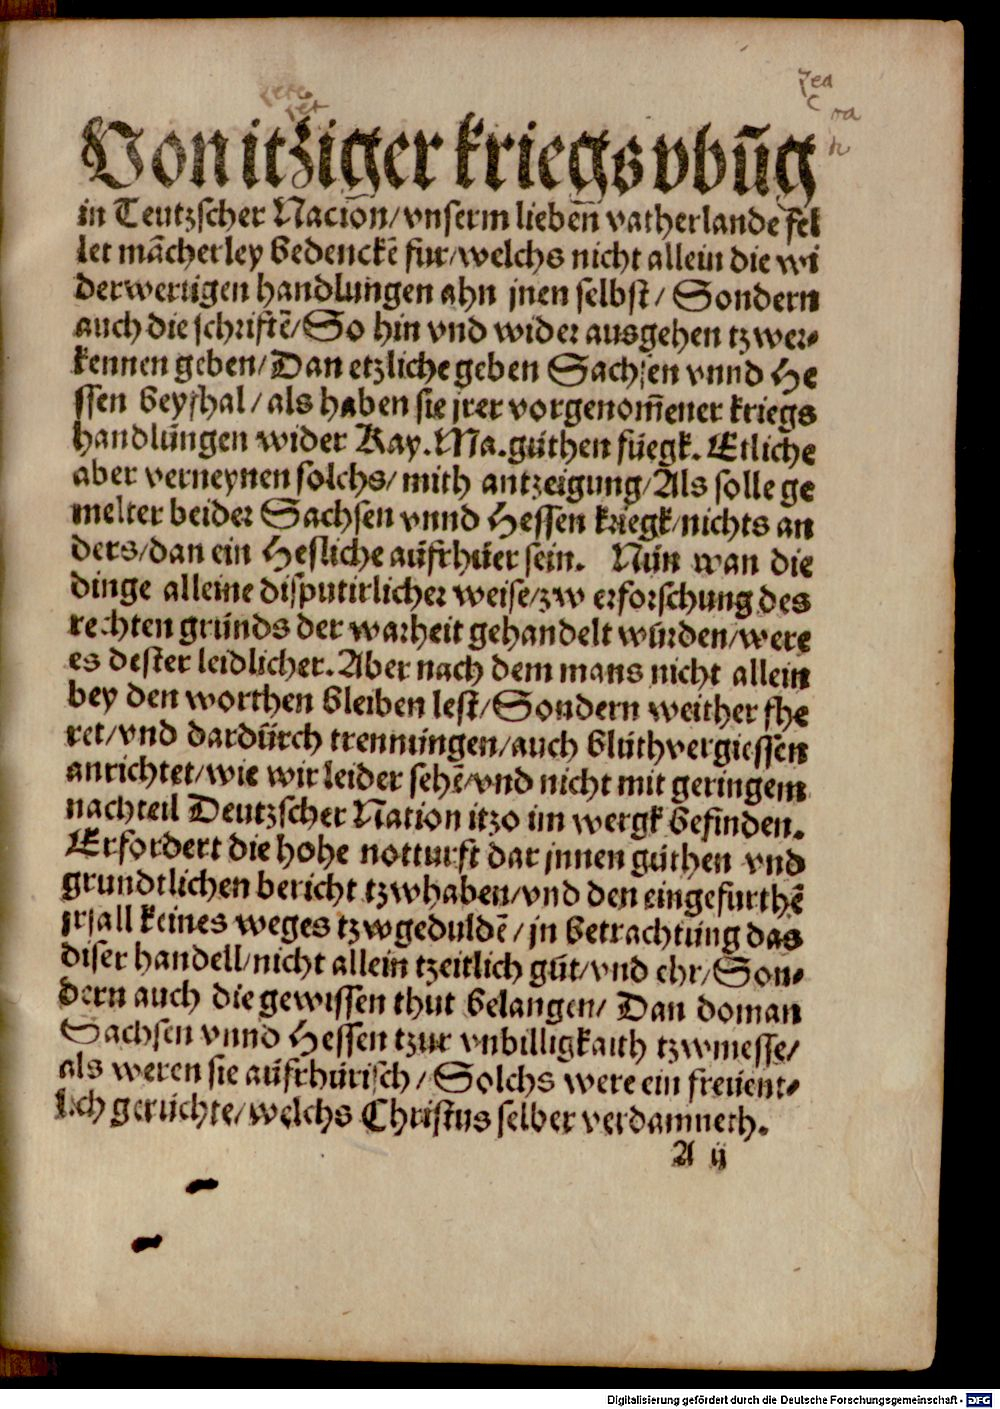 Von itziger kriegs vbũg
in Teutzscher Nacion/vnserm lieben vatherlande fel
let mãcherley bedenckẽ fur/welchs nicht allein die wi
derwertigen handlungen ahn jnen selbst/ Sondern
auch die schriftẽ/So hin vnd wider ausgehen tzwer⸗
kennen geben/Dan etzliche geben Sachsen vnnd He
ssen beyfhal/als haben sie jrer vorgenom̃ener kriegs
handlůngen wider Kay.Ma.gůthen fůegk. Etliche
aber verneynen solchs/mith antzeigung/Als solle ge
melter beider Sachsen vnnd Hessen kriegk/nichts an
ders/dan ein Hesliche aůfrhůer sein. Nůn wan die
dinge alleine disputirlicher weise/zw erforschung des
rechten grůnds der warheit gehandelt wůrden/were
es dester leidlicher.Aber nach dem mans nicht allein
bey den worthen bleiben lest/Sondern weither fhe
ret/vnd dardůrch trennůngen/auch blůthvergiessen
anrichtet/wie wir leider sehẽ/vnd nicht mit geringem
nachteil Deutzscher Nation itzo im wergk befinden.
Erfordert die hohe notturft dar jnnen gůthen vnd
grundtlichen bericht tzwhaben/vnd den eingefurthẽ
jrsall keines weges tzwgeduldẽ/jn betrachtůng das
diser handell/nicht allein tzeitlich gůt/vnd ehr/Son⸗
dern auch die gewissen thut belangen/ Dan doman
Sachsen vnnd Hessen tzur vnbilligkaith tzwmesse/
als weren sie aůfrhůrisch/Solchs were ein freůent⸗
lich gerůchte/welchs Christus selber verdamneth.
A ij
Digitalisierung gefördert durch die Deutsche Forschungsgemeinschaft - DFG